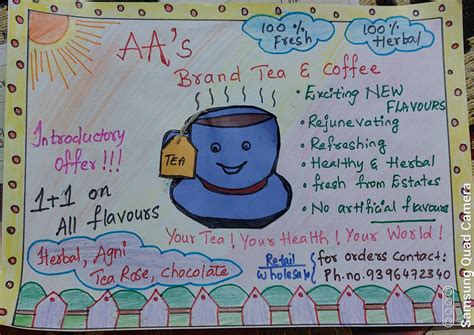 100%
Fresh
100%
Herbal
AA's
Brand Tea & Coffee
Introductory
Offer !!!
1+1 on
All flavours
TEA
• Exciting NEW
FLAVOURS
• Rejunevating
• Refreshing
• Healthy & Herbal
• fresh from Estates
• No artificial flavours
Your Tea ! Your Health ! Your World !
Herbal, Agni
Tea Rose, Chocolate
Retail
wholesale
for orders Contact:
Ph.no. 9396472340
Samsung Quad Camera